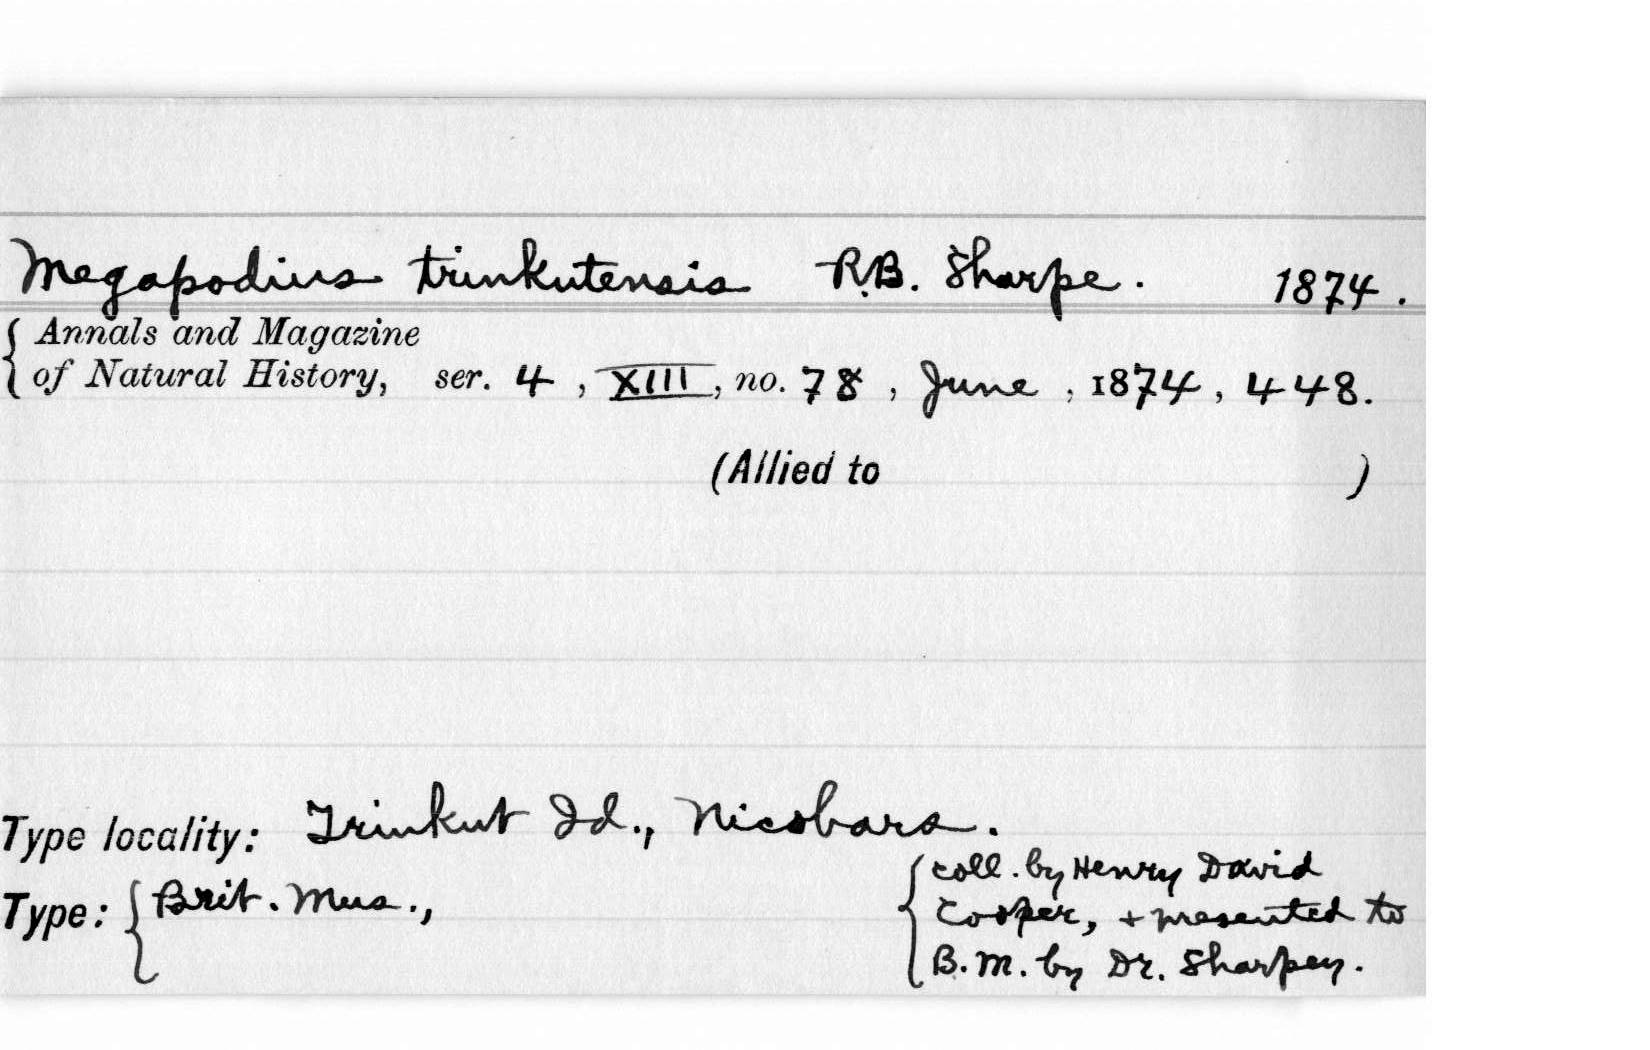 Megapodius trinkutensis R.B. Sharpe. 1874.
{ Annals and Magazine
of Natural History, ser. 4, XIII, no. 78, June, 1874, 448.
(Allied to )
Type locality: Trinkut Id., Nicobars.
{ coll. by Henry David
Type: { Brit. Mus., Cooper, + presented to
B.M. by Dr. Sharpey.